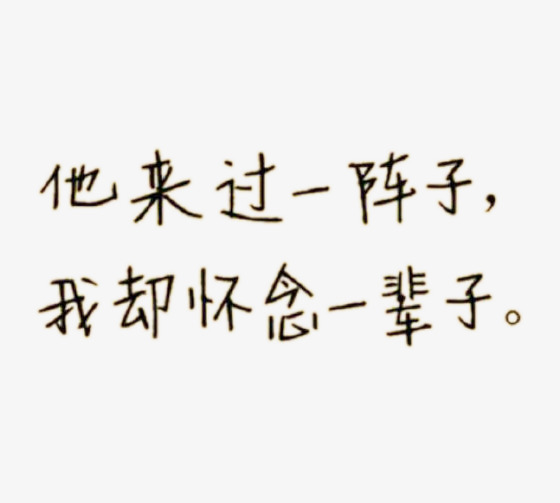 他来过一阵子，
我却怀念一辈子。